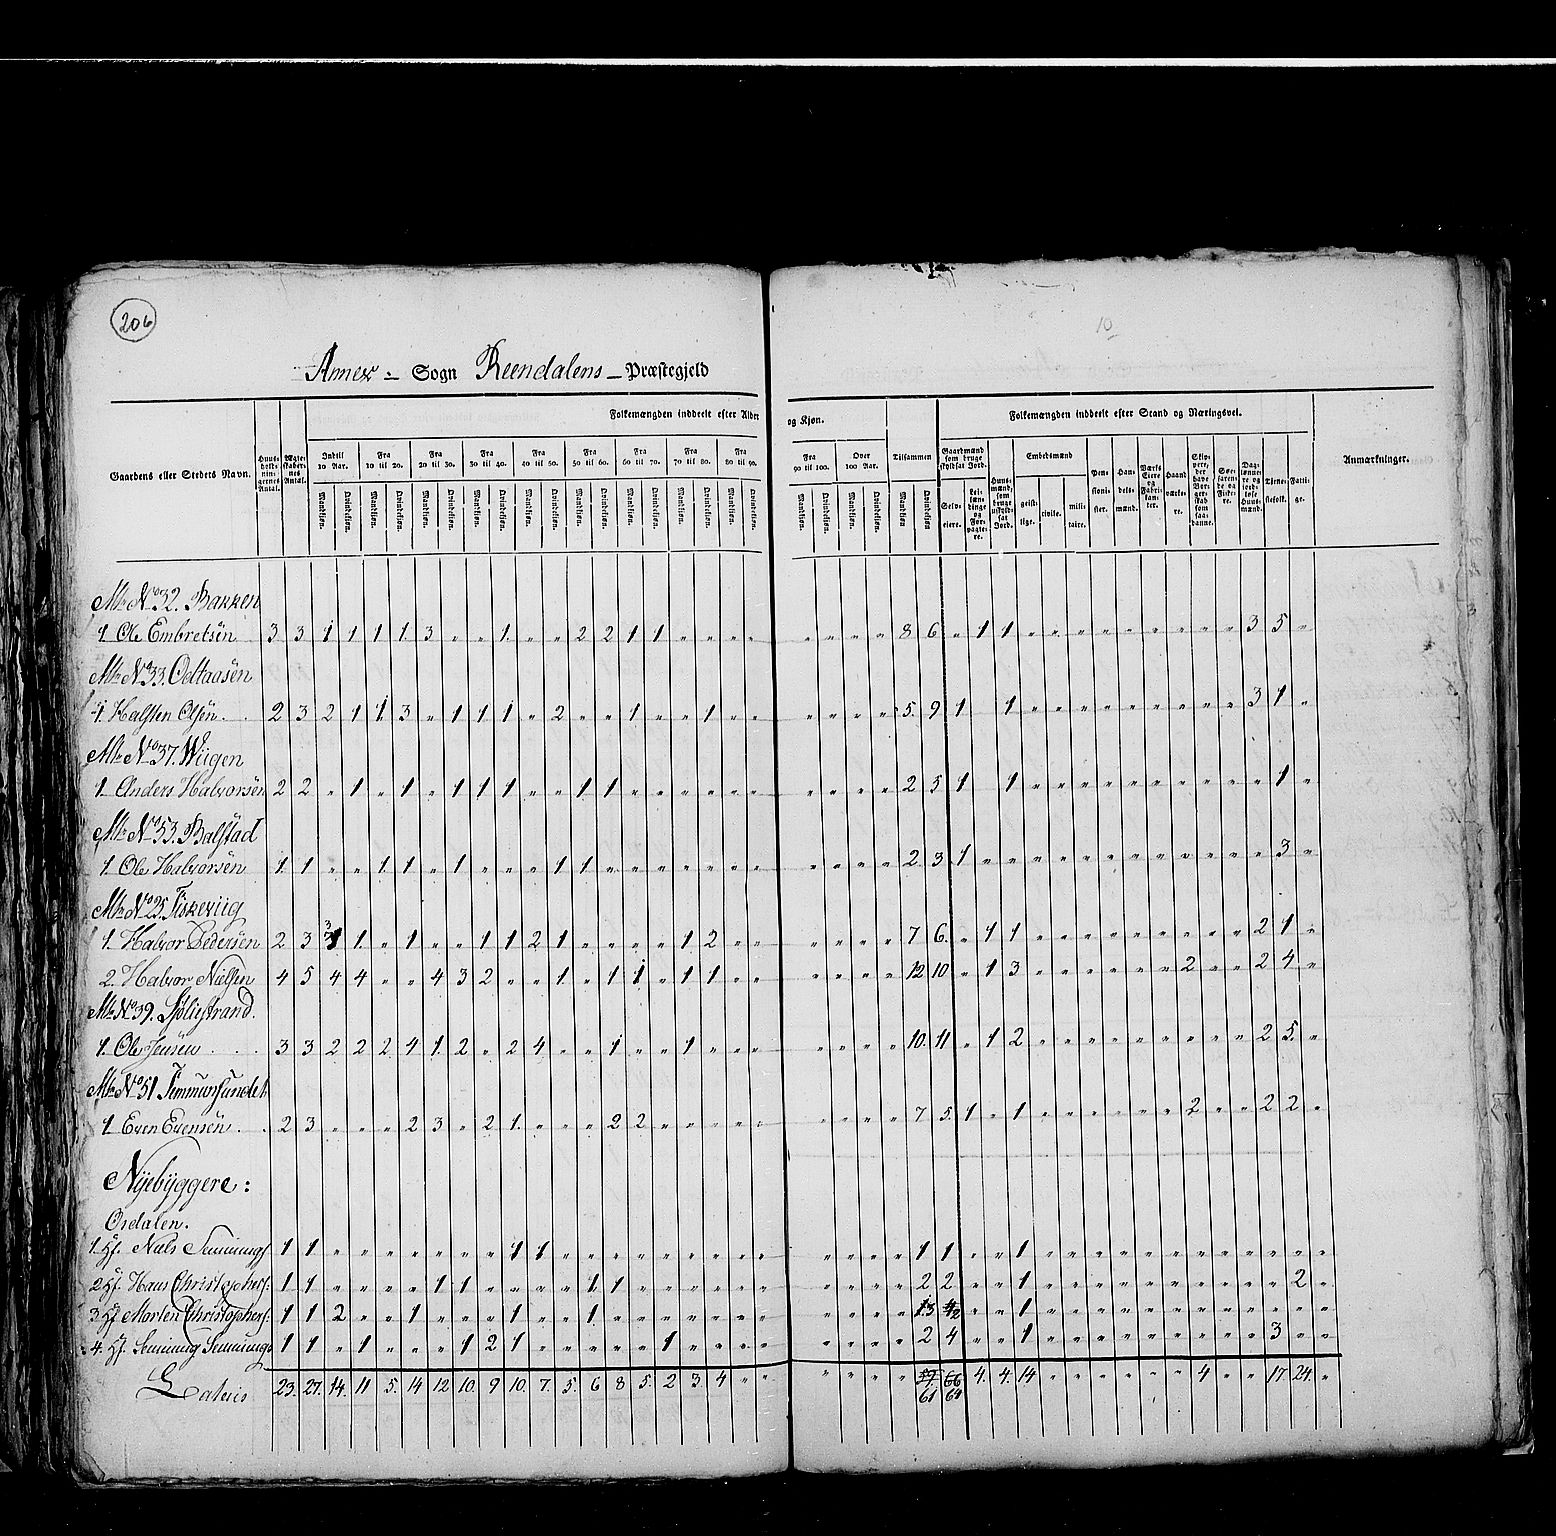 206
10
Annex :- Sogn Reendalens - Præstegjeld
Gaardens eller Stedets Navn. Huus-holdningernes Antal. Ægteskabernes Antal. Folkemængden inddeelt efter Alder og Kjøn. Tilsammen Folkemængden inddeelt efter Stand og Næringsvei. Anmærkninger.
Indtil 10 Aar. Fra 10 til 20. Fra 20 til 30. Fra 30 til 40. Fra 40 til 50. Fra 50 til 60. Fra 60 til 70. Fra 70 til 80. Fra 80 til 90. Fra 90 til 100. Over 100 Aar. Gaardmænd som bruge skyldsat Jord. Huusmænd, som bruge uskyldsat Jord. Embedsmænd Pensionister. Handelsmænd. Værks Eiere og Fabrikanter. Haandværkere. Skippere, der have Borgerskab som saadanne. Søefarende og Fiskere. Dagslønnere og jordløse Huusmænd. Tjenestefolk. Fattige.
Mandkjøn. Qvindekjøn. Mandkjøn. Qvindekjøn. Mandkjøn. Qvindekjøn. Mandkjøn. Qvindekjøn. Mandkjøn. Qvindekjøn. Mandkjøn. Qvindekjøn. Mandkjøn. Qvindekjøn. Mandkjøn. Qvindekjøn. Mandkjøn. Qvindekjøn. Mandkjøn. Qvindekjøn. Mandkjøn. Qvindekjøn. Mandkjøn Qvindekjøn. Selveiere. Leilændinge og Forpagtere. geistlige. civile. militaire.
Mtr No 32. Bakken
1. Ole Embretsen 3 3 1 1 1 1. 3 " " 1. " " 2 2 1 1 " " " " " " " " 8 6 " 1 1 " " " " " " " " " 3 5 "
Mtr No 33. Odtaasen
1. Halsten Olsen . . 2 3 2 1 1. 3 " 1 1 1 " 2 " " 1 " " 1 " " " " " " 5. 9 1 1 " " " " " " " " " 3 1 "
Mtr No 37. Wiigen
1. Anders Halvorsen 2 2 " 1 " 1 " 1 1 1 " " 1 1 " " " " " " " " " " 2 5 1 1 " " " " " " " " " " 1 "
Mtr No 53. Balstad
1. Ole Halvorsen 1. 1 " " 1. 1 " 1 " " " 1 1 " " " " " " " " " " 2. 3 1 " " " " " " " " " " " " 3 "
Mtr No 25. Fiskeviig
1. Halvor Pedersen 2 3 3 1. " 1 " " 1 1 2 1 " " " " 1 2 " " " " " " 7 6. " 1 1 " " " " " " " " " 2 1 "
2. Halvor Nielsen 4 5 4 4 " " 4 3 2 " " 1 " 1 1 " 1 1 " " " " " " 12 10 " 1 3 " " " " " " 2 " " 2 4 "
Mtr No 39. Søliestrand.
1. Ole Jensen . . . 3 3 2 2 2 4 1. 2 " 2 4 " " 1 " " 1 " " " " " " " 10. 11 " 1 2 " " " " " " " " " 2 5. "
Mtr No 51 Femmunsundet
1. Even Evensen . . 2 3 " " " 2 3 " 2 1. " " " 2 2 " " " " " " " " " 7 5. 1 " 1 " " " " " " 2 " " 2 2 "
Nijebijggere :
Osdalen.
1 Hf. Niels 1 1 " " " " " " " 1 1 " " " " " " " " " " " " " 1 1 " " 1 " " " " " " " " " " " "
2 Hf. Hans Christophers: 1 1 " " " " 1 1 " " " " 1 1 " " " " " " " " " " 2 2 " " 1 " " " " " " " " " " 2 "
3 Hf Morten Christophers: 1 1 2 " " 1 " " " 1 " " 1. " " " " " " " " " " " 3 2 " " 1 " " " " " " " " " " " "
4. Hf. 1 1 " 1 " " " 1 2 1 " " " " " 1 " " " " " " " " 2 4 " " 1 " " " " " " " " " 3 " "
Lateris 23. 27. 14. 11 5. 14 12 10. 9 10. 7. 5. 6 8 5. 2 3. 4 " " " " " " 57 66 4. 4. 14 " " " " " " 4 " " 17. 24. "
61 64